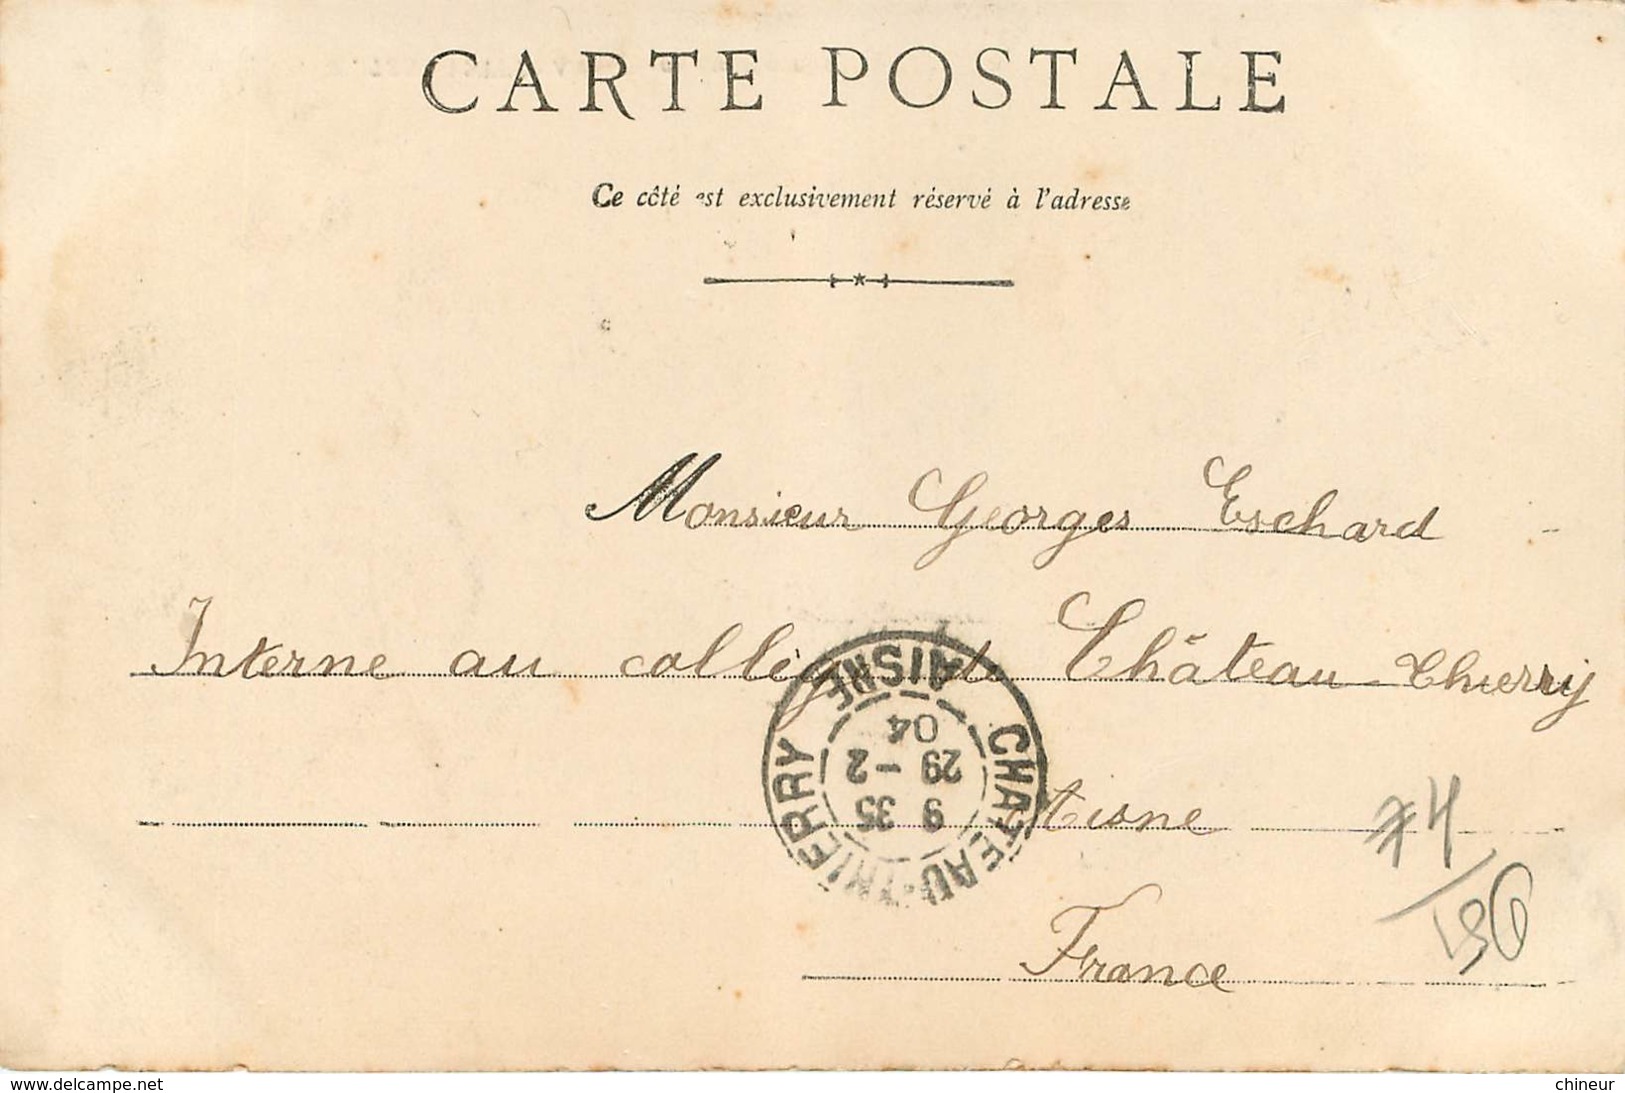 CARTE POSTALE
Ce côté est exclusivement réservé à l'adresse
Monsieur Georges Eschard
Interne au collège de Château-Thierry
Aisne
France
CHATEAU-THIERRY
AISNE
9 35
29 - 2
04
www.delcampe.net
chineur